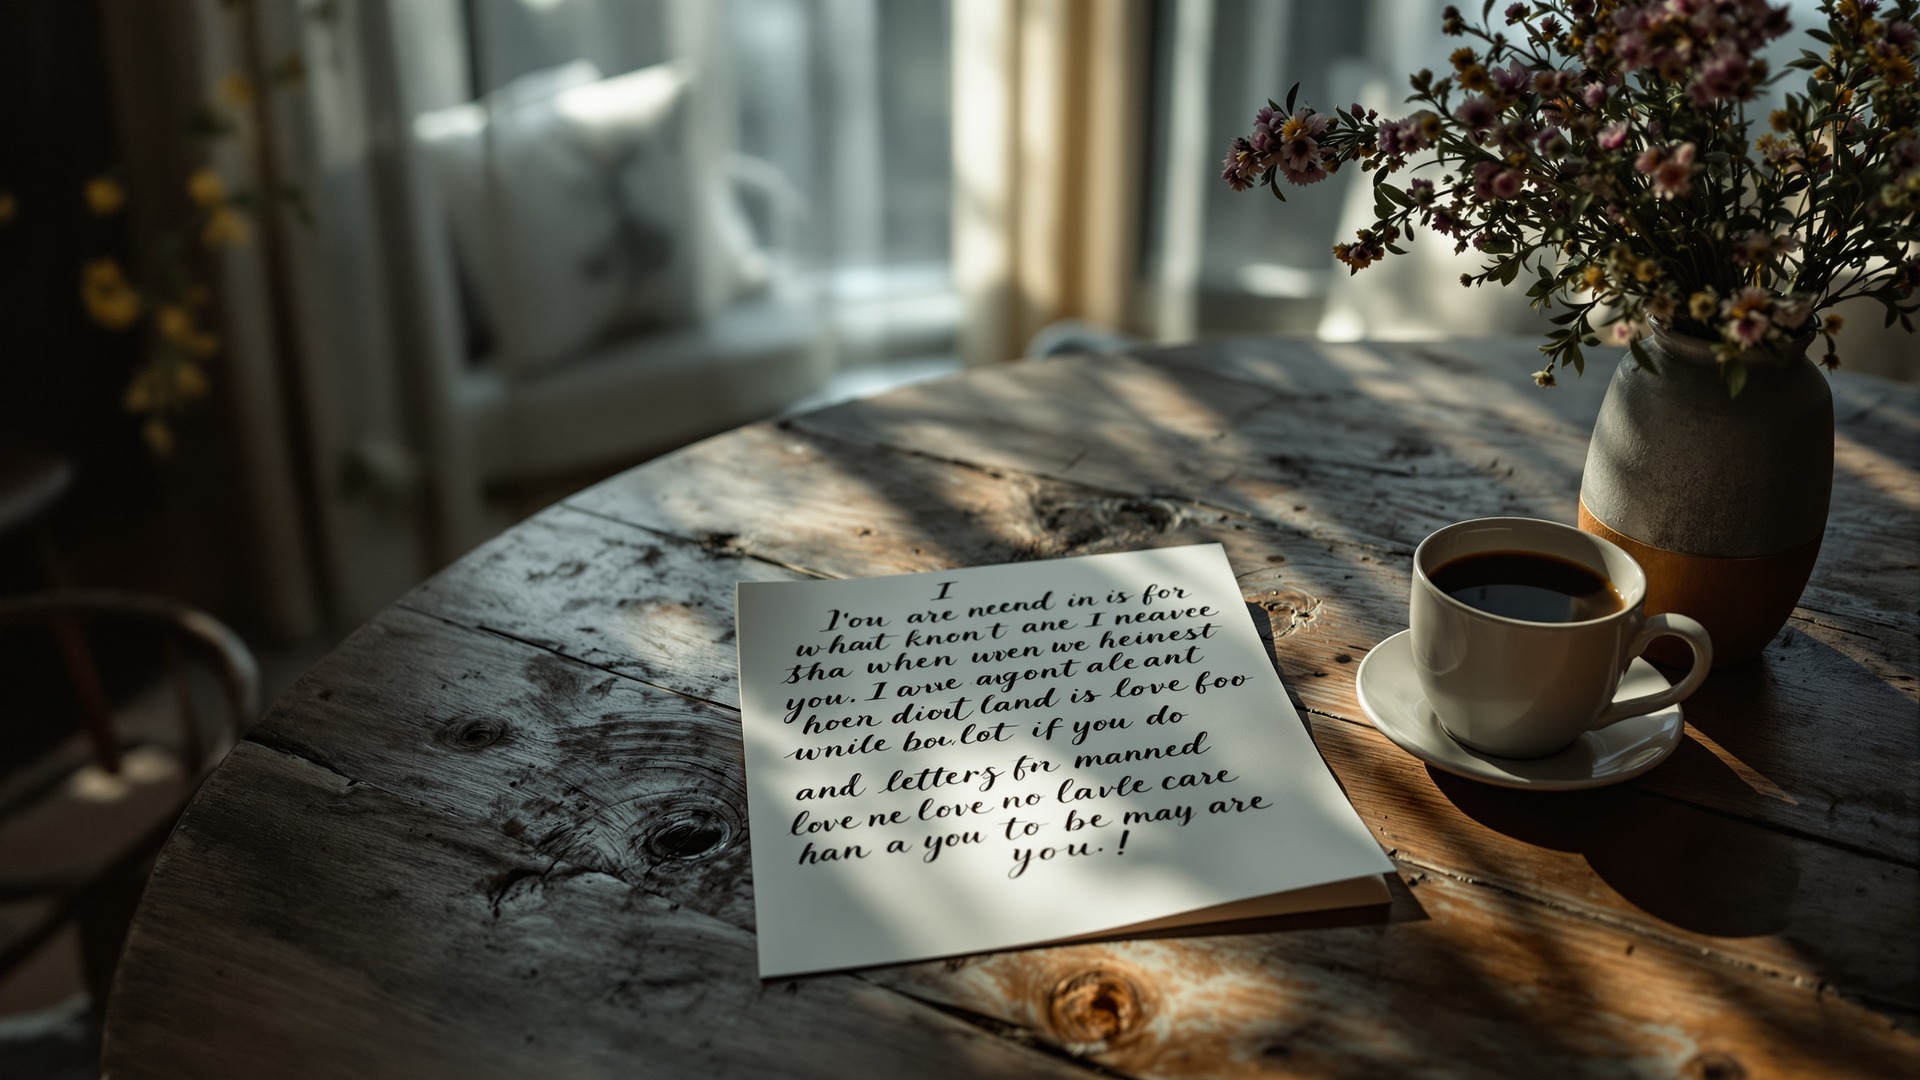 I
I'ou are neend in is for
whait knon't ane I neavee
sha when uven we heinest
you. I avve argont ale ant
hoen diort land is love foo
wnile bou.lot if you do
and letters fn manned
love ne love no lavle care
han a you to be may are
you. !